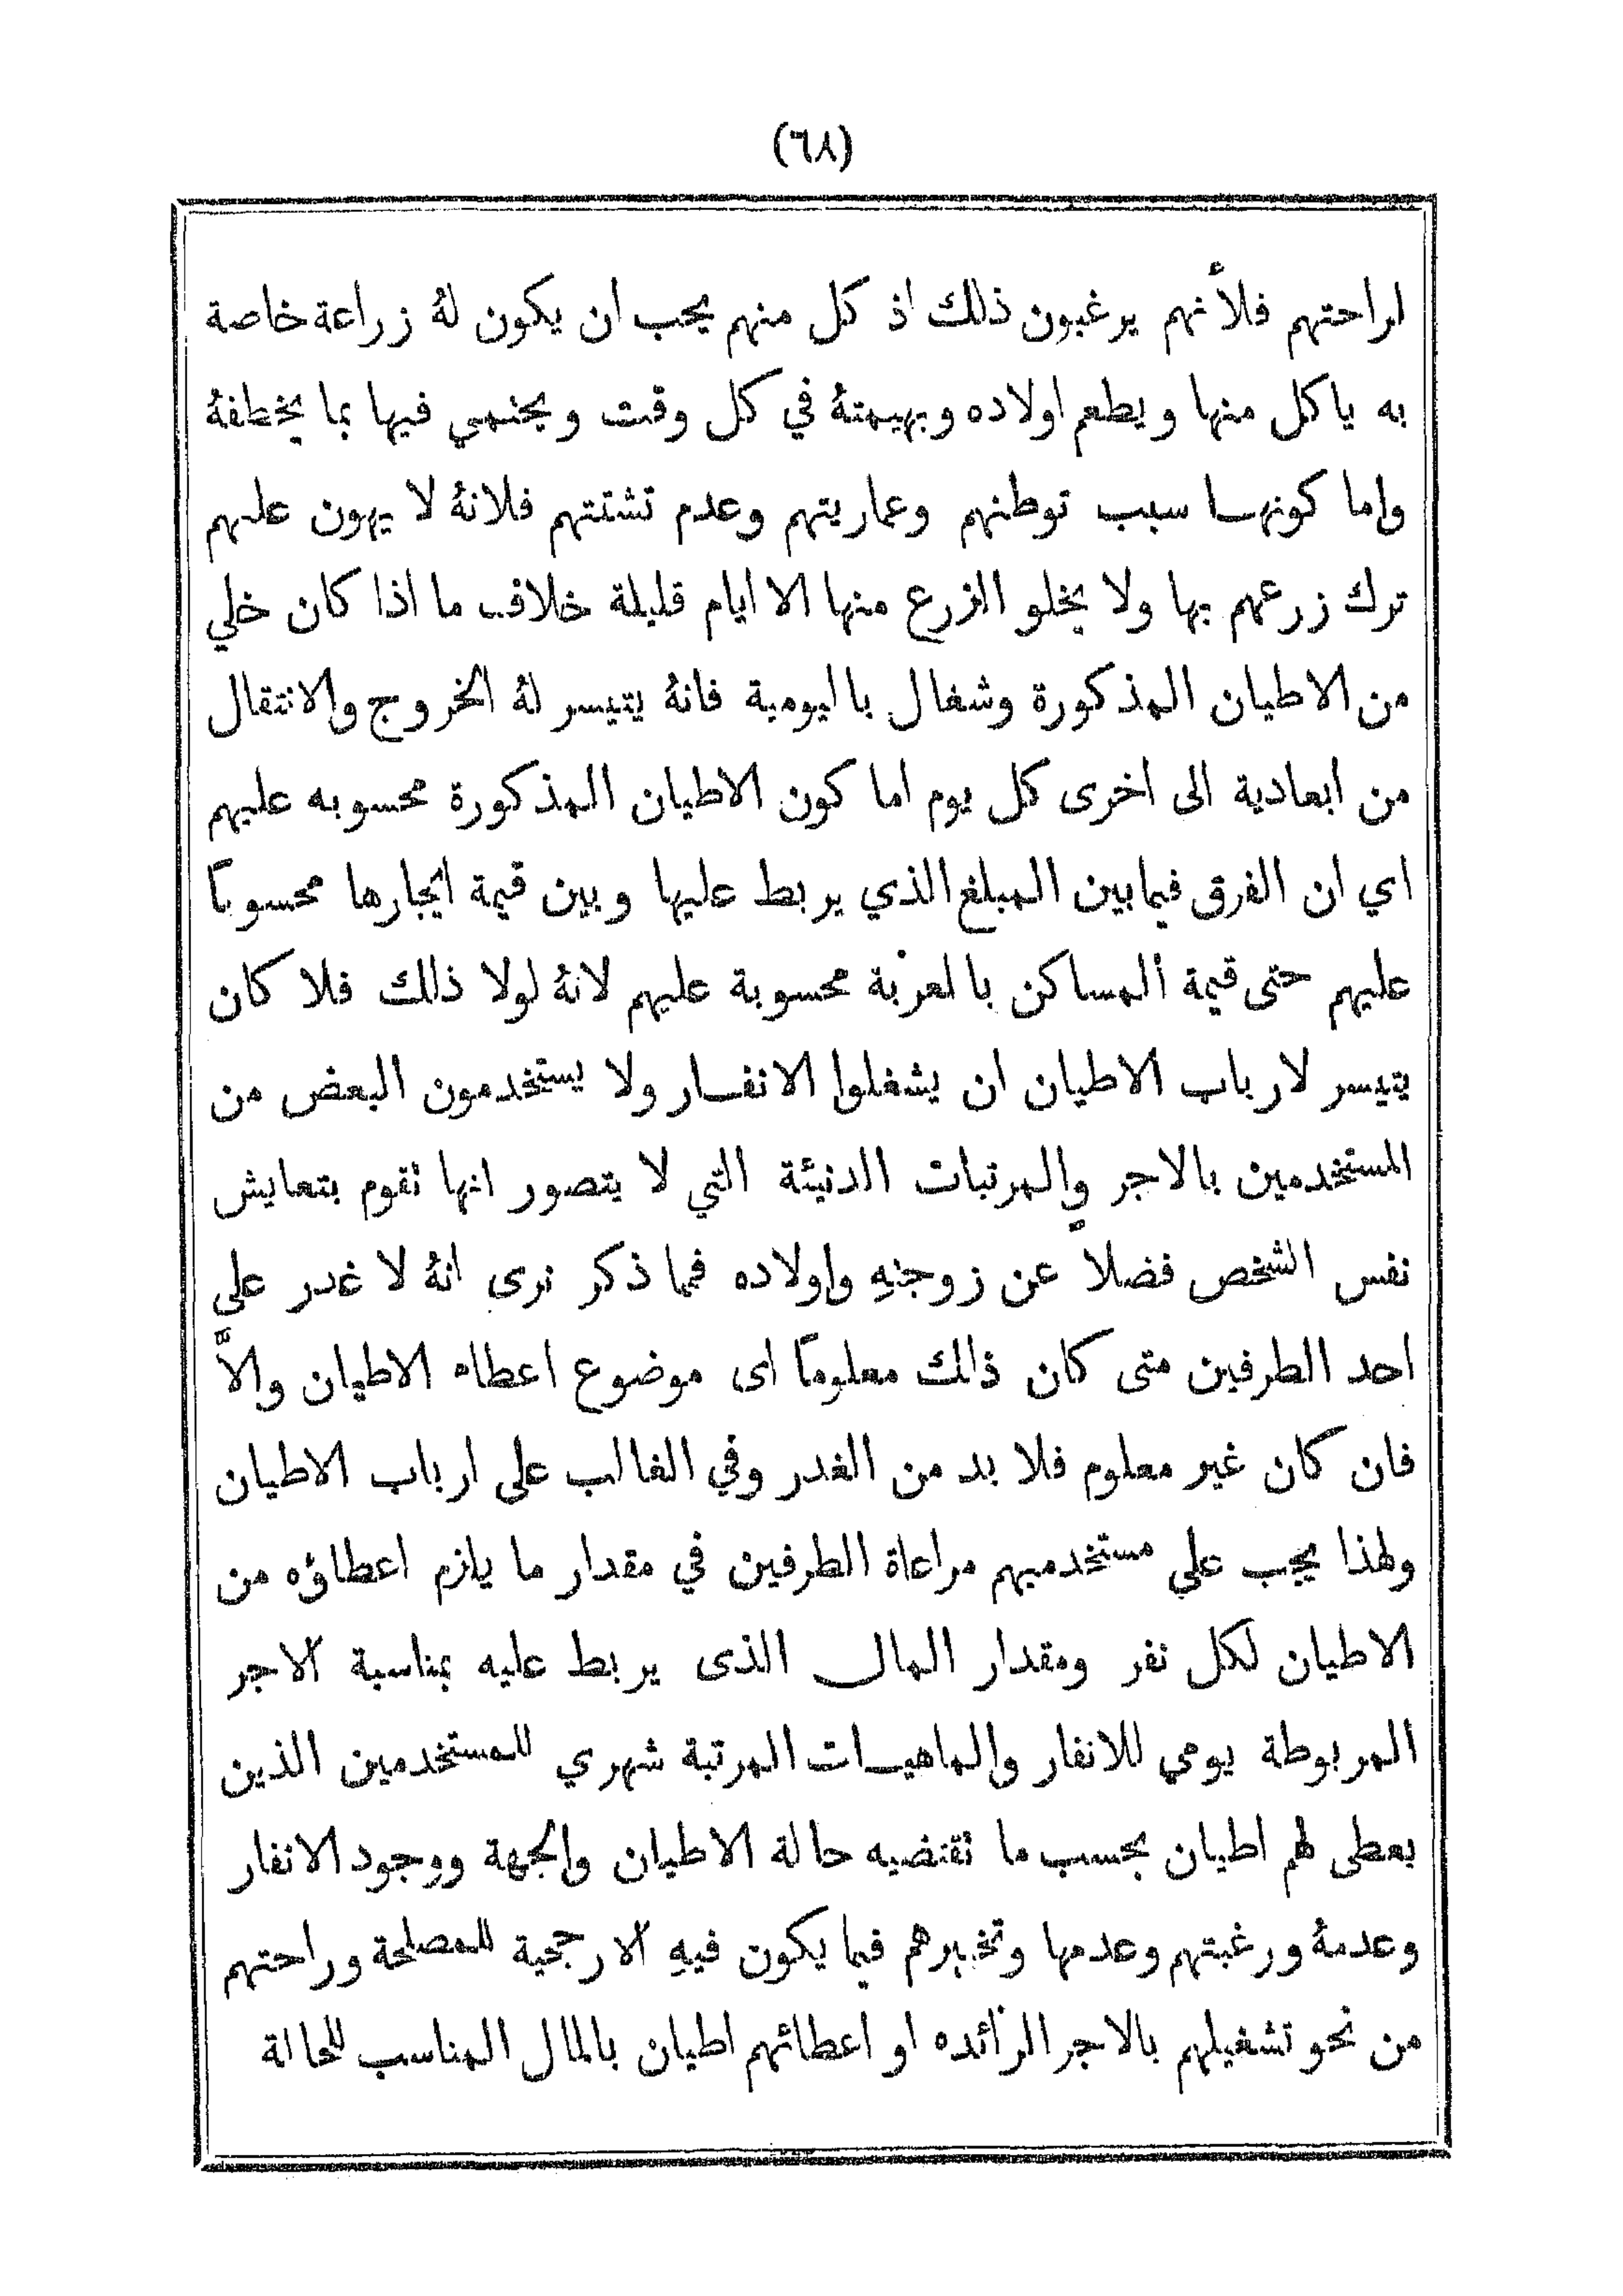 (٦٨)
لراحتهم فلأنهم يرغبون ذلك اذ كل منهم يحب ان يكون لهُ زراعة خاصة
به ياكل منها ويطعم اولاده وبهيمتهُ في كل وقت ويحتمي فيها بما يخطفهُ
واما كونها سبب توطنهم وعماريتهم وعدم تشتتهم فلانهُ لا يهون عليهم
ترك زرعهم بها ولا يخلو الزرع منها الا ايام قليلة خلاف ما اذا كان خلي
من الاطيان المذكورة وشغال با اليومية فانهُ يتيسر لهُ الخروج والانتقال
من ابعادية الى اخرى كل يوم اما كون الاطيان المذكورة محسوبه عليهم
اي ان الفرق فيمابين المبلغ الذي يربط عليها وبين قيمة ايجارها محسوباً
عليهم حتى قيمة المساكن بالعزبة محسوبة عليهم لانهُ لولا ذلك فلا كان
يتيسر لارباب الاطيان ان يشغلوا الانفار ولا يستخدمون البعض من
المستخدمين بالاجر والمرتبات الدنيئة التي لا يتصور انها تقوم بتعايش
نفس الشخص فضلاً عن زوجتهِ واولاده فمما ذكر نرى انهُ لا غدر على
احد الطرفين متى كان ذلك معلوماً اى موضوع اعطاء الاطيان والاَّ
فان كان غير معلوم فلا بد من الغدر وفي الغالب على ارباب الاطيان
ولهذا يجب على مستخدميهم مراعاة الطرفين في مقدار ما يلزم اعطاؤه من
الاطيان لكل نفر ومقدار المال الذى يربط عليه بمناسبة الاجر
المربوطة يومي للانفار والماهيات المرتبة شهري للمستخدمين الذين
يعطى لهم اطيان بحسب ما تقتضيه حالة الاطيان والجهة ووجود الانفار
وعدمهُ ورغبتهم وعدمها وتخبرهم فيما يكون فيهِ الارجحية للمصلحة وراحتهم
من نحو تشغيلهم بالاجر الزائده او اعطائهم اطيان بالمال المناسب للحالة